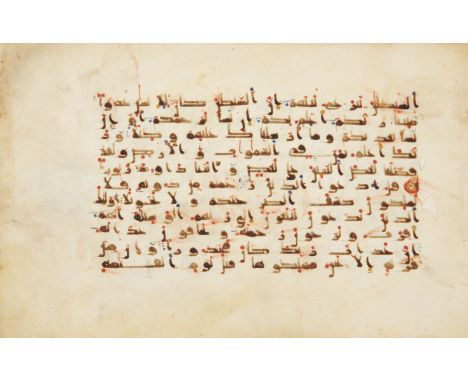 الشيطن ينزغ بينهم ان الشيطن كان للانسن عدوا
مبينا ربكم اعلم بكم ان يشا يرحمكم او ان
يشا يعذبكم وما ارسلنك عليهم وكيلا و ر
بك اعلم بمن في السموت والارض ولقد
فضلنا بعض النبين على بعض واتينا داود زبورا
قل ادعوا الذين زعمتم من دونه فلا
يملكون كشف الضر عنكم ولا تحويلا
اولئك الذين يدعون يبتغون الى ربهم الوسيلة ايهم
اقرب ويرجون رحمته ويخافون عذابه ان
عذاب ربك كان محذورا وان من
قرية الا نحن مهلكوها قبل يوم القيمة